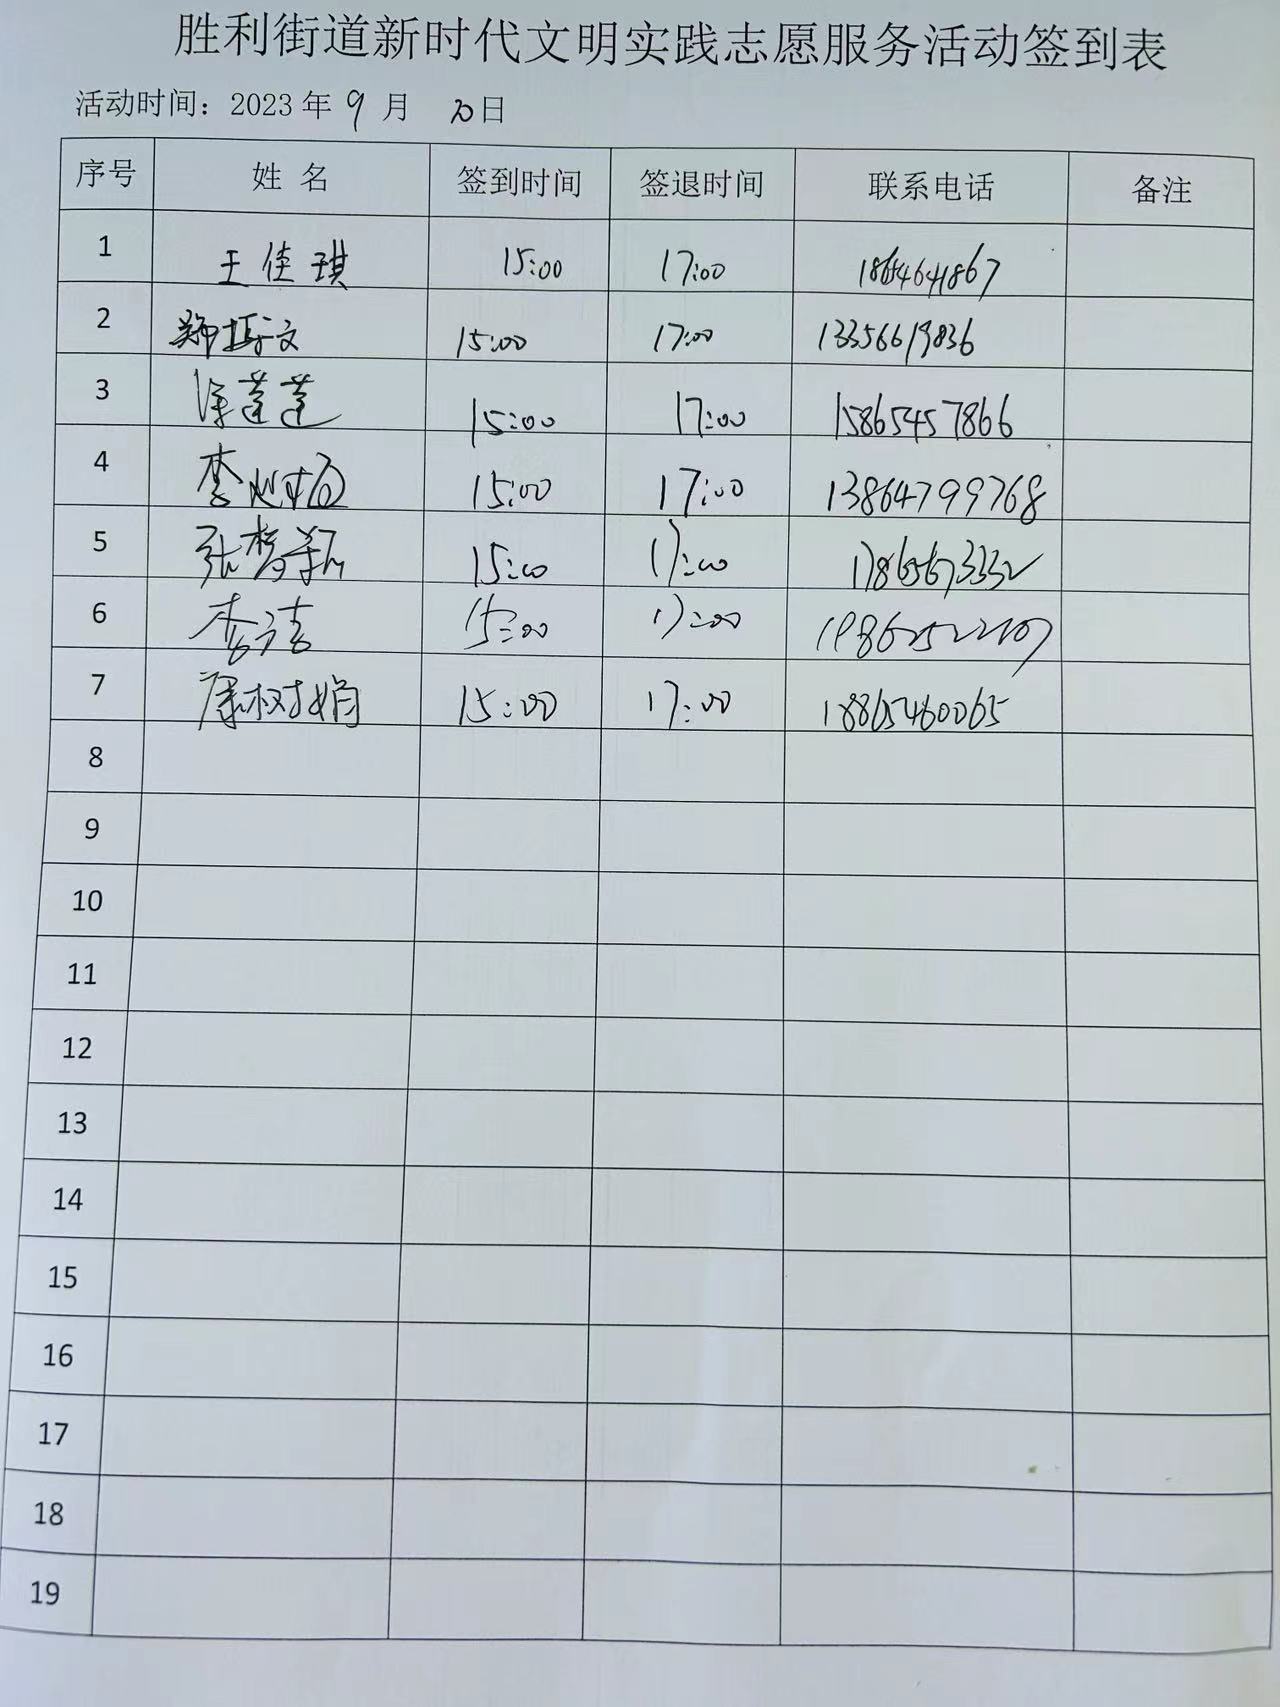 胜利街道新时代文明实践志愿服务活动签到表
活动时间：2023年 9 月 20日
序号 姓 名 签到时间 签退时间 联系电话 备注
1 王佳琪 15:00 17:00 18654641867
2 郑 文 15:00 17:00 13356619836
3 徐莲莲 15:00 17:00 15865457866
4 李 15:00 17:00 13864799768
5 张梦 15:00 17:00 17865673332
6 李 15:00 17:00
7 康树娟 15:00 17:00 18865460065
8
9
10
11
12
13
14
15
16
17
18
19